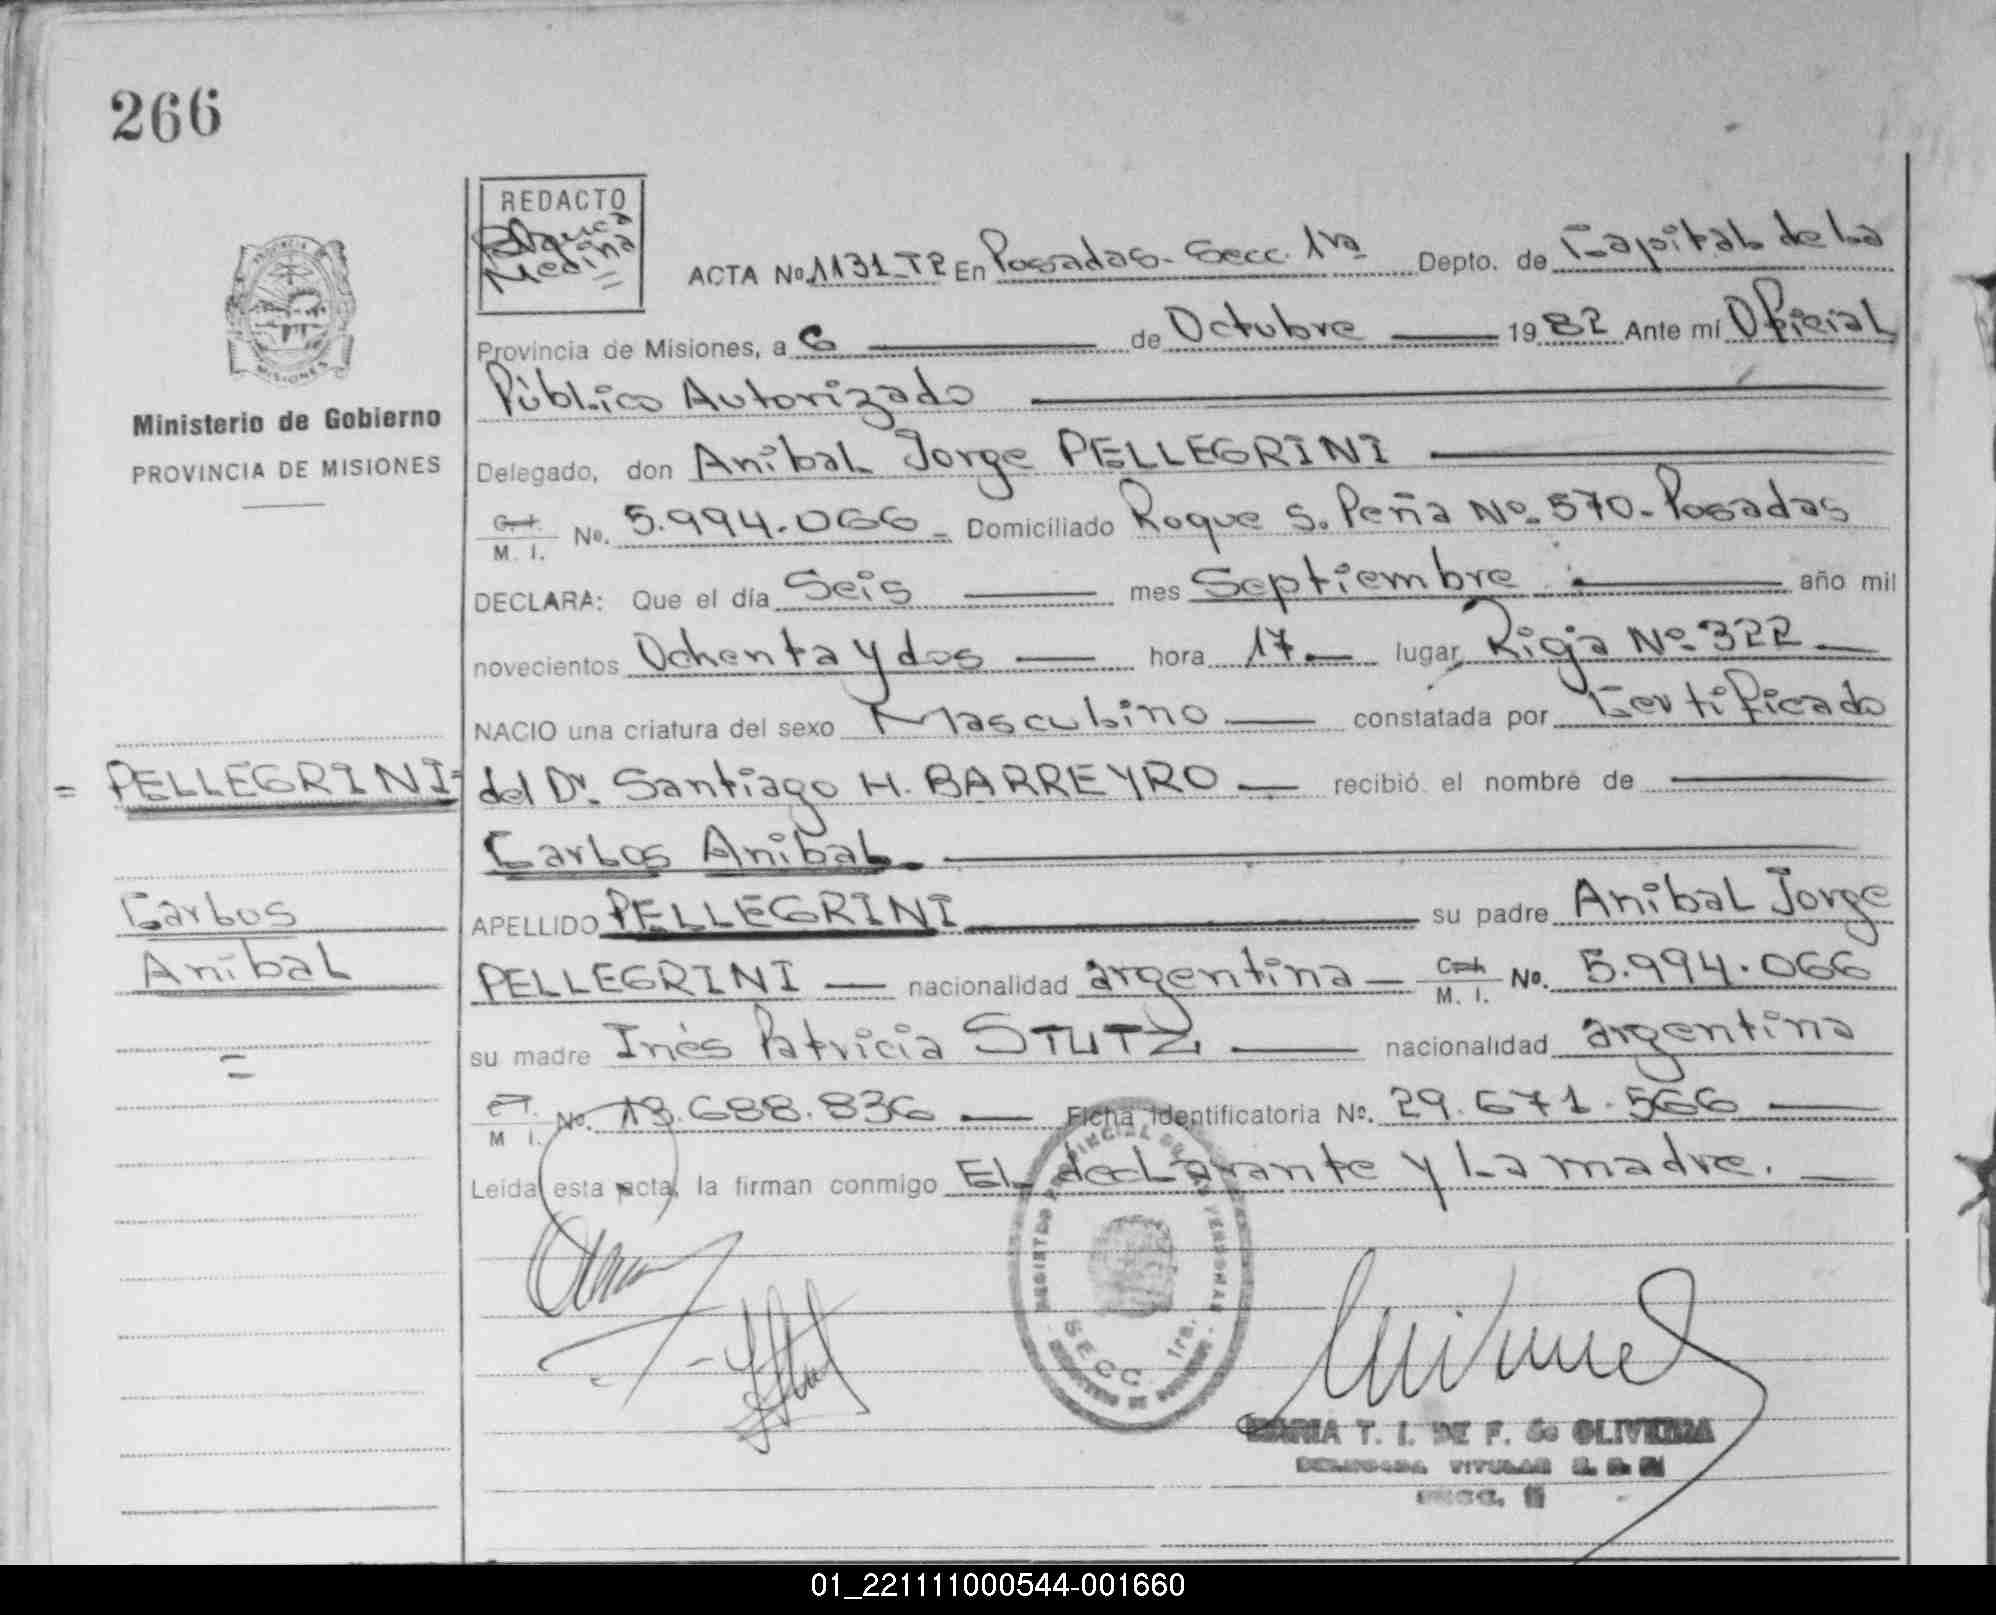 266
REDACTO
Blanca
Medina
ACTA No. 1131-T2 En Posadas- Secc. 1ra Depto. de Capital de la
Provincia de Misiones, a 6 de Octubre 1982 Ante mí Oficial
Público Autorizado
Delegado, don Aníbal Jorge PELLEGRINI
C.I.
M. I. No. 5.994.066 - Domiciliado Roque S. Peña Nº 570- Posadas
DECLARA: Que el día Seis mes Septiembre año mil
novecientos Ochenta y dos hora 17 lugar Rioja Nº 322
NACIO una criatura del sexo Masculino constatada por Certificado
del Dr. Santiago H. BARREYRO recibió el nombre de
Carlos Anibal.
APELLIDO PELLEGRINI su padre Aníbal Jorge
PELLEGRINI nacionalidad argentina C.I.
M. I. No. 5.994.066
su madre Inés Patricia STUTZ nacionalidad argentina
C.I.
M I. No. 13.688.836 Ficha Identificatoria Nº. 29.671.566
Leída esta acta, la firman conmigo El declarante y la madre.
PROVINCIA DE
MISIONES
Ministerio de Gobierno
PROVINCIA DE MISIONES
= PELLEGRINI=
Carlos
Anibal
=
REGISTRO PROVINCIAL DE LAS PERSONAS
SECC. 1ra.
MARIA T. I. DE F. de OLIVEIRA
DELEGADA TITULAR
SECC.
01_221111000544-001660